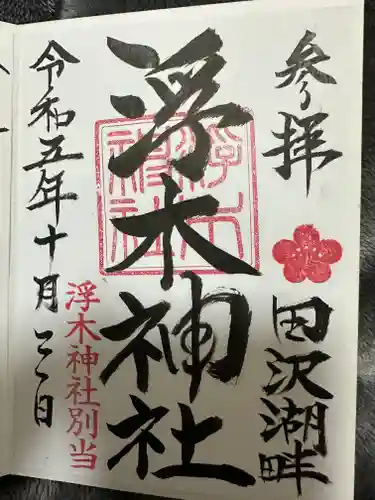 参拝
田沢湖畔
浮木神社
浮木神社
浮木神社別当
令和五年十月三日